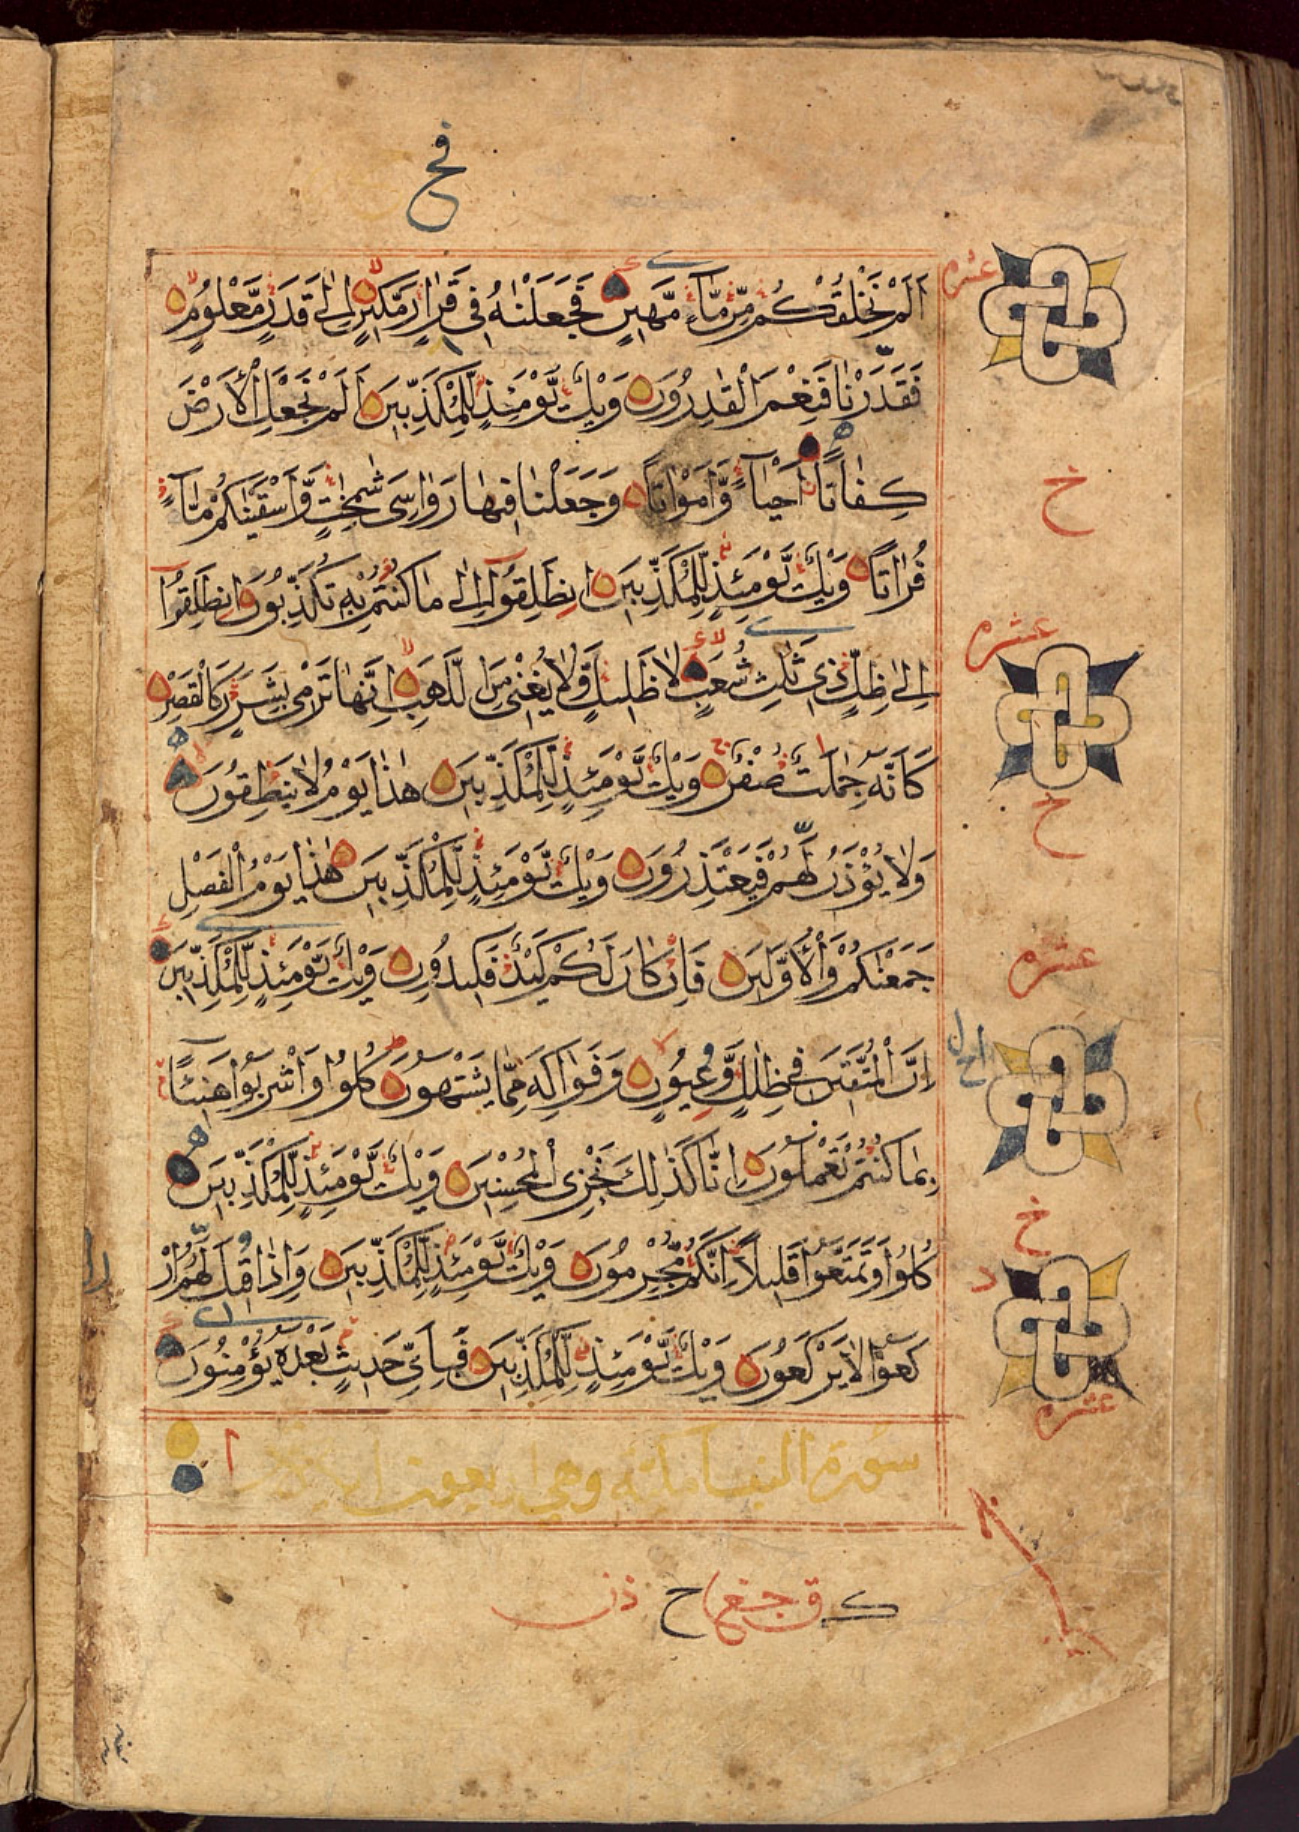 فح
اَلَمْ نَخْلُقْكُمْ مِّنْ مَّآءٍ مَّهِيْنٍ فَجَعَلْنٰهُ فِيْ قَرَارٍ مَّكِيْنٍ اِلٰى قَدَرٍ مَّعْلُوْمٍ
فَقَدَرْنَا فَنِعْمَ الْقٰدِرُوْنَ وَيْلٌ يَّوْمَئِذٍ لِّلْمُكَذِّبِيْنَ اَلَمْ نَجْعَلِ الْاَرْضَ
كِفَاتًا اَحْيَآءً وَّاَمْوَاتًا وَجَعَلْنَا فِيْهَا رَوَاسِيَ شٰمِخٰتٍ وَّاَسْقَيْنٰكُمْ مَّآءً
فُرَاتًا وَيْلٌ يَّوْمَئِذٍ لِّلْمُكَذِّبِيْنَ اِنْطَلِقُوْا اِلٰى مَا كُنْتُمْ بِهٖ تُكَذِّبُوْنَ اِنْطَلِقُوْا
اِلٰى ظِلٍّ ذِيْ ثَلٰثِ شُعَبٍ لَا ظَلِيْلٍ وَّلَا يُغْنِيْ مِنَ اللَّهَبِ اِنَّهَا تَرْمِيْ بِشَرَرٍ كَالْقَصْرِ
كَاَنَّهٗ جِمٰلَتٌ صُفْرٌ وَيْلٌ يَّوْمَئِذٍ لِّلْمُكَذِّبِيْنَ هٰذَا يَوْمُ لَا يَنْطِقُوْنَ
وَلَا يُؤْذَنُ لَهُمْ فَيَعْتَذِرُوْنَ وَيْلٌ يَّوْمَئِذٍ لِّلْمُكَذِّبِيْنَ هٰذَا يَوْمُ الْفَصْلِ
جَمَعْنٰكُمْ وَالْاَوَّلِيْنَ فَاِنْ كَانَ لَكُمْ كَيْدٌ فَكِيْدُوْنِ وَيْلٌ يَّوْمَئِذٍ لِّلْمُكَذِّبِيْنَ
اِنَّ الْمُتَّقِيْنَ فِيْ ظِلٰلٍ وَّعُيُوْنٍ وَفَوَاكِهَ مِمَّا يَشْتَهُوْنَ كُلُوْا وَاشْرَبُوْا هَنِيْئًا
بِمَا كُنْتُمْ تَعْمَلُوْنَ اِنَّا كَذٰلِكَ نَجْزِي الْمُحْسِنِيْنَ وَيْلٌ يَّوْمَئِذٍ لِّلْمُكَذِّبِيْنَ
كُلُوْا وَتَمَتَّعُوْا قَلِيْلًا اِنَّكُمْ مُّجْرِمُوْنَ وَيْلٌ يَّوْمَئِذٍ لِّلْمُكَذِّبِيْنَ وَاِذَا قِيْلَ لَهُمُ ارْ
كَعُوْا لَا يَرْكَعُوْنَ وَيْلٌ يَّوْمَئِذٍ لِّلْمُكَذِّبِيْنَ فَبِاَيِّ حَدِيْثٍ بَعْدَهٗ يُؤْمِنُوْنَ
سورة النبا مكية وهي اربعون
عشره
خ
عشره
خ
عشره
خ
عشره